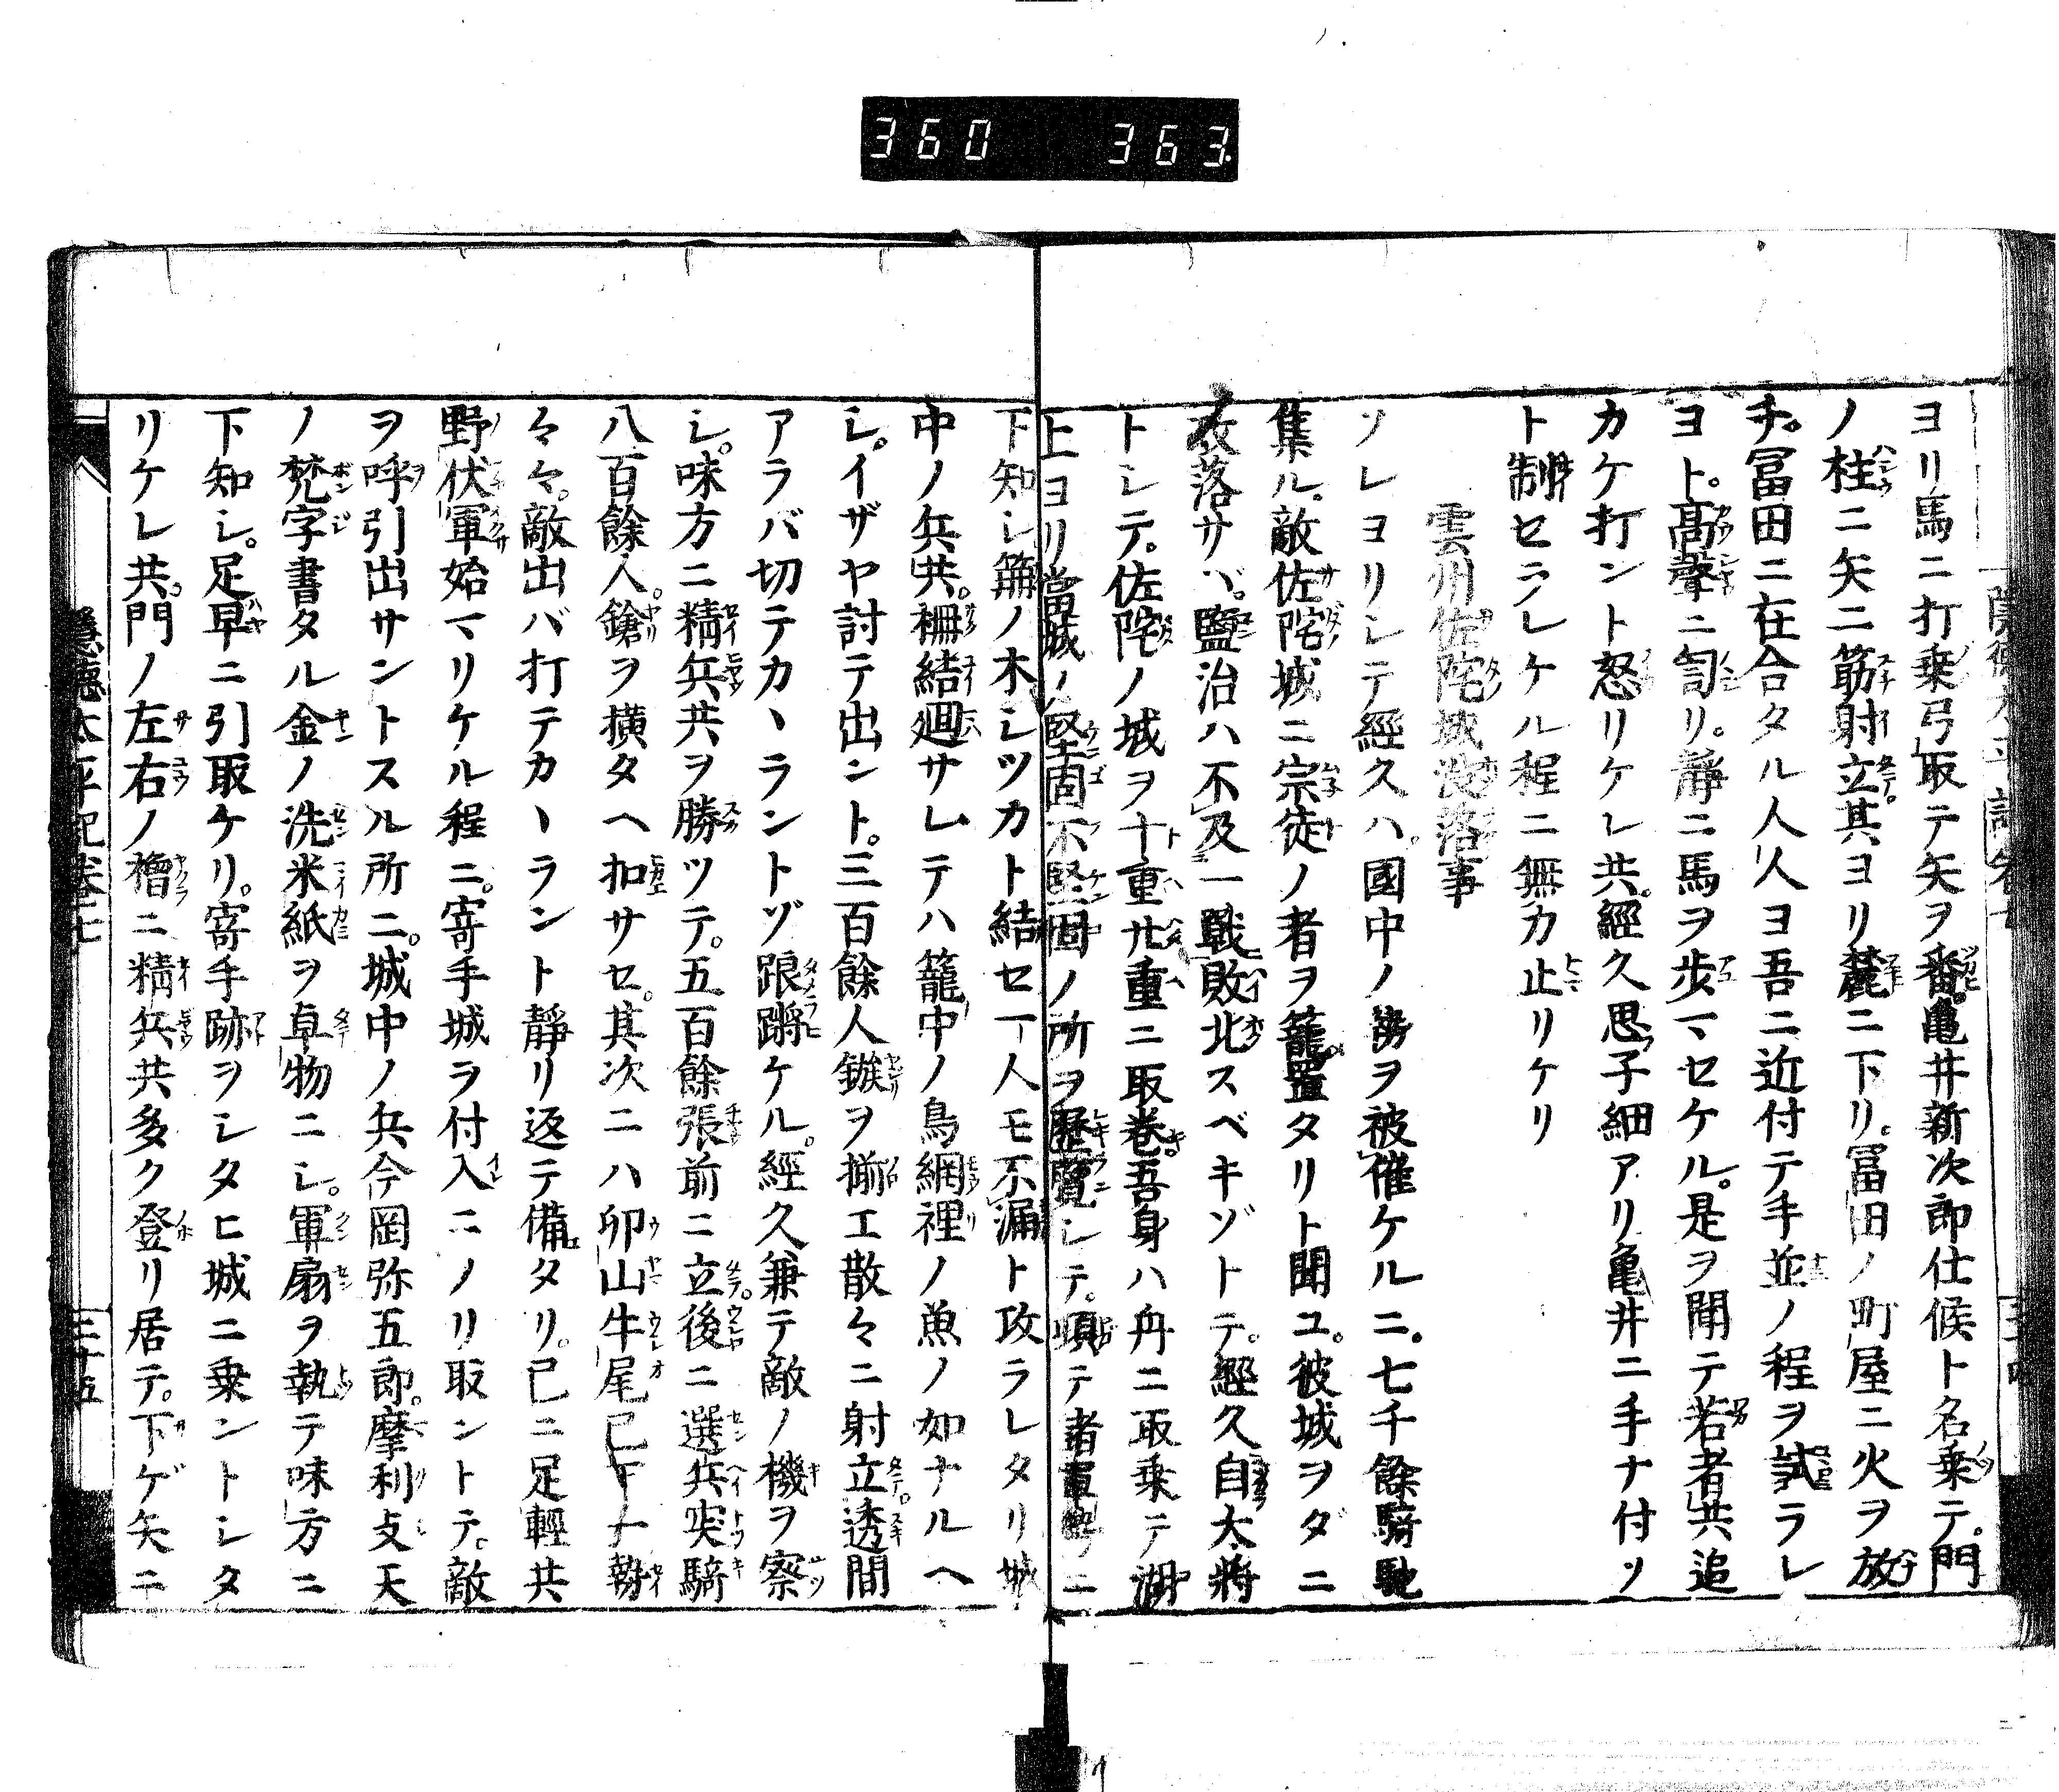 360 363
ヨリ馬ニ打乗弓取テ矢ヲ番亀井新次郎仕候ト名乗テ。門
ノ柱ニ矢二筋射立其ヨリ麓ニ下リ。冨田ノ町屋ニ火ヲ放
チ。冨田ニ在合タル人人ヨ吾ニ近付テ手並ノ程ヲ試ラレ
ヨト。髙聲ニ訇リ。静ニ馬ヲ歩マセケル。是ヲ聞テ若者共追
カケ打ント怒リケレ共。經久思子細アリ亀井ニ手ナ付ソ
ト制セラレケル程ニ無力止リケリ
雲州佐陀城没落事
ソレヨリシテ經久ハ。國中ノ勢ヲ被催ケルニ。七千餘騎馳
集ル。敵佐陀城ニ宗徒ノ者ヲ籠置タリト聞ユ。彼城ヲダニ
攻落サバ。鹽冶ハ不及一戰敗北スベキゾトテ。經久自大将
トシテ。佐陀ノ城ヲ十重廿重ニ取巻。吾身ハ舟ニ取乗テ湖
上ヨリ當城ノ堅固不堅固ノ所ヲ歷覽シテ。頓テ諸軍勢ニ
下知シ籬ノ木シツカト結セ一人モ不漏ト攻ラレタリ城
中ノ兵共。柵結廻サレテハ籠中ノ鳥網裡ノ魚ノ如ナルヘ
シ。イザヤ討テ出ント。三百餘人鏃ヲ揃エ散々ニ射立透間
アラバ切テカヽラントゾ踉蹡ケル。經久兼テ敵ノ機ヲ察
シ。味方ニ精兵共ヲ勝ツテ。五百餘張前ニ立後ニ選兵突騎
八百餘人。鎗ヲ横タヘ扣サセ。其次ニハ卯山牛尾已下ノ勢
々々。敵出バ打テカヽラント静リ返テ備タリ。已ニ足輕共
野伏軍始マリケル程ニ。寄手城ラ付入ニノリ取ントテ。敵
ヲ呼引出サントスル所ニ。城中ノ兵今岡弥五郎。摩利支天
ノ梵字書タル金ノ洗米紙ヲ卓物ニシ。軍扇ヲ執テ味方ニ
下知シ。足早ニ引取ケリ。寄手跡ヲシタヒ城ニ乗ントシタ
リケレ共。門ノ左右ノ櫓ニ精兵共多ク登リ居テ。下ゲ矢ニ
隱德太平記卷七 三十五